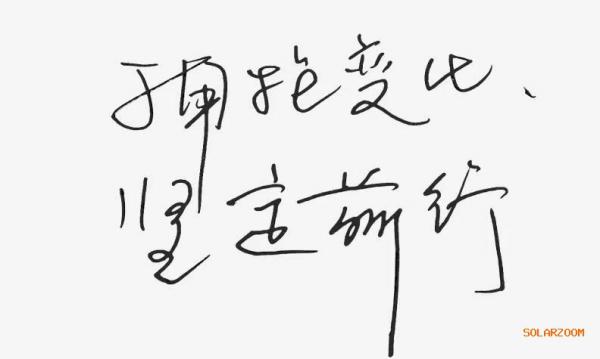 拥抱变化、
坚定前行
SOLARZOOM